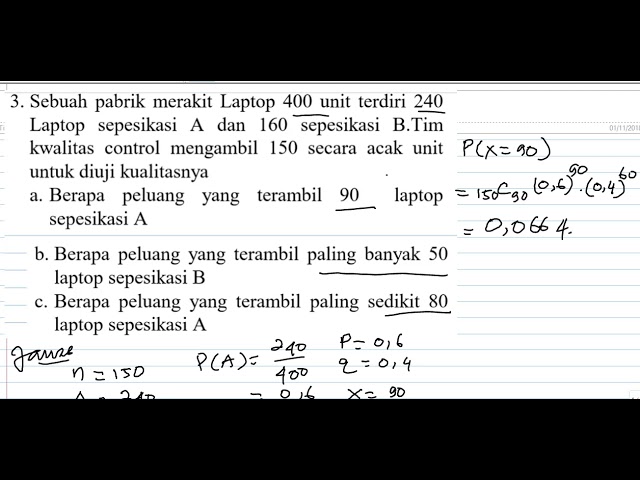 3. Sebuah pabrik merakit Laptop 400 unit terdiri 240
Laptop sepesikasi A dan 160 sepesikasi B.Tim
kwalitas control mengambil 150 secara acak unit
untuk diuji kualitasnya
a. Berapa peluang yang terambil 90 laptop
sepesikasi A
b. Berapa peluang yang terambil paling banyak 50
laptop sepesikasi B
c. Berapa peluang yang terambil paling sedikit 80
laptop sepesikasi A
01/11/201
P(X=90)
= 150C90 (0,6)^90 . (0,4)^60
= 0,0664.
n = 150
P(A) = 240/400
= 0,6
P = 0,6
q = 0,4
x = 90